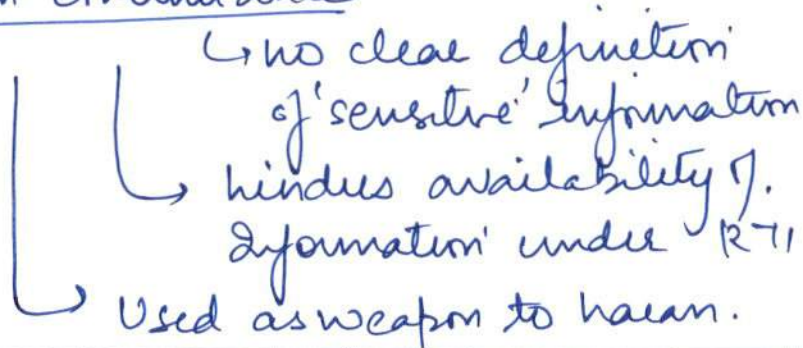 ↳ no clear definition
of 'sensitive' information
→ hinders availability of
Information under RTI
→ Used as weapon to harass.